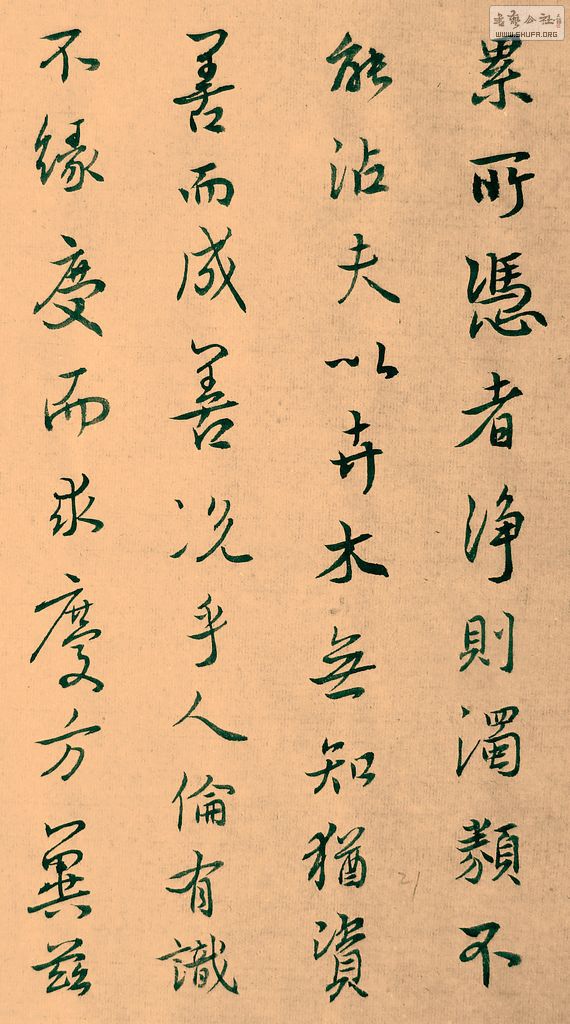 书艺公社
WWW.SHUFA.ORG
累所憑者淨則濁類不
能沾夫以卉木無知猶資
善而成善况乎人倫有識
不緣慶而求慶方冀茲